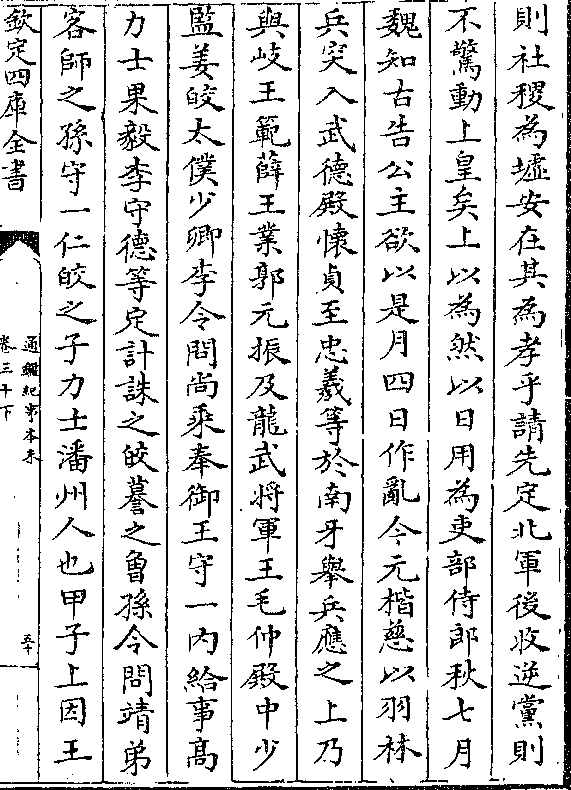 則社稷為墟安在其為孝乎請先定北軍後收逆黨則
不驚動上皇矣上以為然以日用為吏部侍郎秋七月
魏知古告公主欲以是月四日作亂令元楷慈以羽林
兵突入武德殿懷貞至忠羲等於南牙舉兵應之上乃
與岐王範薛王業郭元振及龍武將軍王毛仲殿中少
監姜皎太僕少卿李令問尚乘奉御王守一内給事高
力士果毅李守德等定計誅之皎謩之曾孫令問靖弟
客師之孫守一仁皎之子力士潘州人也甲子上因王
欽定四庫全書
通鑑紀事本末
卷三十下
五十